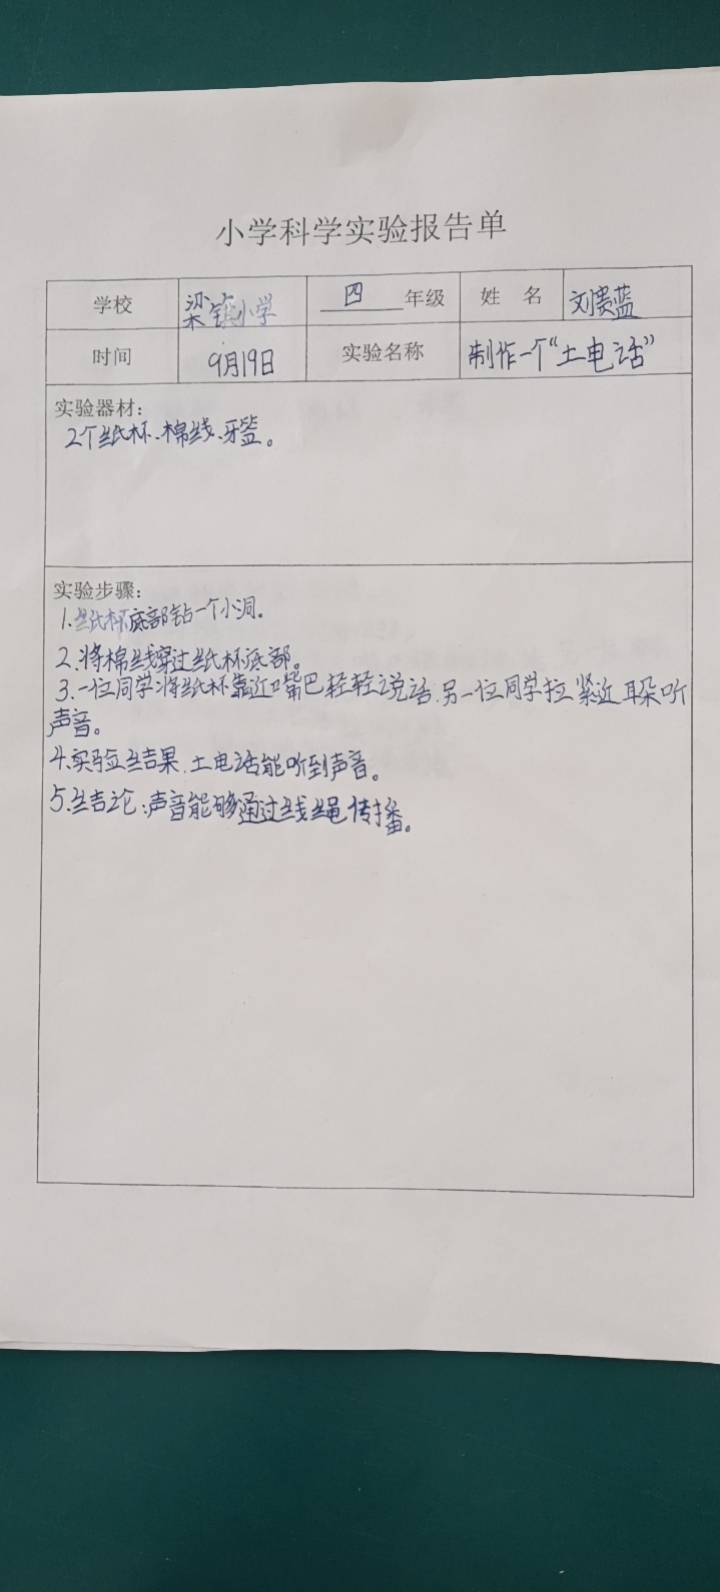 小学科学实验报告单
学校 梁镇小学 四年级 姓名 刘贵蓝
时间 9月19日 实验名称 制作一个“土电话”
实验器材：
2个纸杯、棉线、牙签。
实验步骤：
1.纸杯底部钻一个小洞。
2.将棉线穿过纸杯底部。
3.一位同学将纸杯靠近嘴巴轻轻说话.另一位同学拉紧近耳朵听
声音。
4.实验结果.土电话能听到声音。
5.结论:声音能够通过线绳传播。